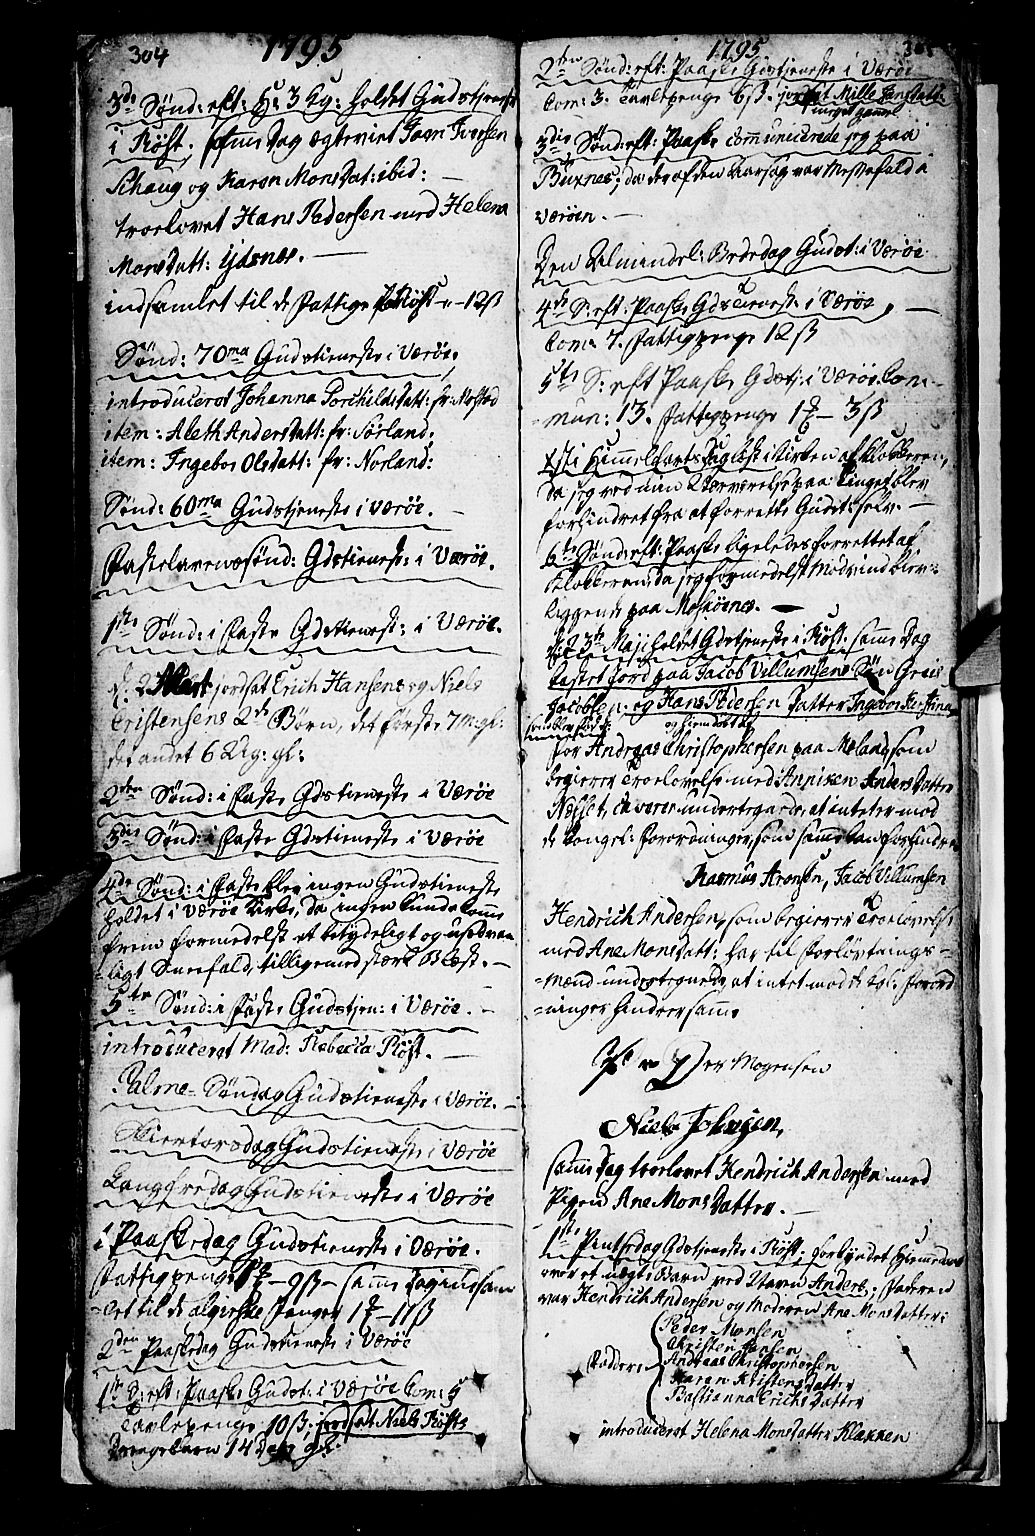 304
1795
3die Sønd: eft: H: 3 Kg: holdet Gudstjeneste
i Røst. samme Dag ægteviet Joen Iversen
Schaug og Karen MonsDat: ibid:
troelovet Hans Pedersen med Helena
MonsDatt: Ydsnes.
indsamlet til de Fattige i Røst - 12ß
Sønd: 70ma Gudstieneste i Værøe,
introduceret Johanna TorchildsDatt: fr: Mostad
item: Aleth AndersDatt: fr: Sørland:
item: Ingebor Olsdatt: fr: Norland:
Sønd: 60ma Gudstjeneste i Værøe.
Fastelavenssønd: Gdstienest: i Værøe.
1ste Sønd: i Faste Gdstienest: i Værøe.
d: 2 Mart jordfæt Erich Hansens og Niels
Cristensens 2de Børn, det første 7 M: gl:
det andet 6 Ug: gl:
2den Sønd: i Faste Gdstieneste i Værøe
3die Sønd: i Faste Gdstieneste i Værøe
4de Sønd: i Faste blev ingen Gudstieneste
holdet i Værøe Kirke, da ingen kunde komme
frem formedelst et betydeligt og usædvan
-ligt Sneefald, tilligemed stærk Blest.
5te Sønd: i Faste Gudstjen: i Værøe.
introduceret Mad: Rebecca Røst.
Palme-Søndag Gudstieneste i Værøe.
Skiertorsdag Gudstieneste i Værøe
Langfredag Gudstieneste i Værøe
1 Paaskedag Gudstieneste i Værøe.
Fattigpenge - 9ß - samme Dag indsam
-let til de algierske Fanger 1 - 11ß
2den Paaskedag Gudstieneste i Værøe
1ste S: eft: Paaske Gudst: i Værøe Com: 5
Tavlepenge 10ß. jordfæt Niels Røsts
Drengebarn 14 Dage gl:
1795
2den Sønd: eft: Paaske Gudstjeneste i Værøe
Com: 3. Tavlepenge 6ß. jordfæt Mille JensDatt:
meget gammel
3die Sønd: eft: Paaske communicerede jeg paa
Buxnes, da der af den Aarsag var Messefald i
Værøen.
Den Almindel: Bededag Gudst: i Værøe
4de S: eft: Paaske Gdstieneste i Værøe,
Com: 7. Fattigpenge 12ß
5te S: eft Paaske Gdstj: i Værøe Com-
-mun: 13. Fattigpenge 1 - 3ß
Xsti Himmelfarts Dag læst i Kirken af Klokkeren,
da jeg ved min Nærværelse paa Tinget blev
forhindret fra at forrette Gudst: selv.
6te Sønd: eft: Paaske ligeledes forrettet af
Klokkeren, da jeg formedelst Modvind blev
liggende paa Moskøenes.
d: 23de Maji holdet Gdstjeneste i Røst. samme Dag
kastet Jord paa Jacob Villumsens Søn Greis
Jacobsen, og Hans Pedersen Datter Ingebor Kirstina
og hiemdøbt af
for Andreas Christophersen paa som
begierer Troelovelse med Anniken Anders Datter
Næsset, caverer undertegnede, at intet er mod
de Kongel: Forordninger, som samme kan forhindre
Rasmus Aronsen, Jacob Villumsen
Hendrich Andersen, som begierer Troelovelse
med Ane MonsDatt: har til Forlovnings-
-mænd undertegnede, at intet mod de kgl: Forord
-ninger hindrer samme
Per Mogensen
Niels Johnsen,
samme Dag troelovet Hendrich Andersen med
Pigen Ane MonsDatter.
1ste Pintsedag Gdstjeneste i Røst. forkyndet Hjemmedaab
over et uægte Barn ved Navn Anders; Faderen
var Hendrich Andersen og Moderen Ane MonsDatter:
Peder Monsen
Christen Jensen
Faddere: Andreas Christophersen
Karen Kristens Datter
Bastianna Erichs Datter
introduceret Helena Mons Datter Klakken